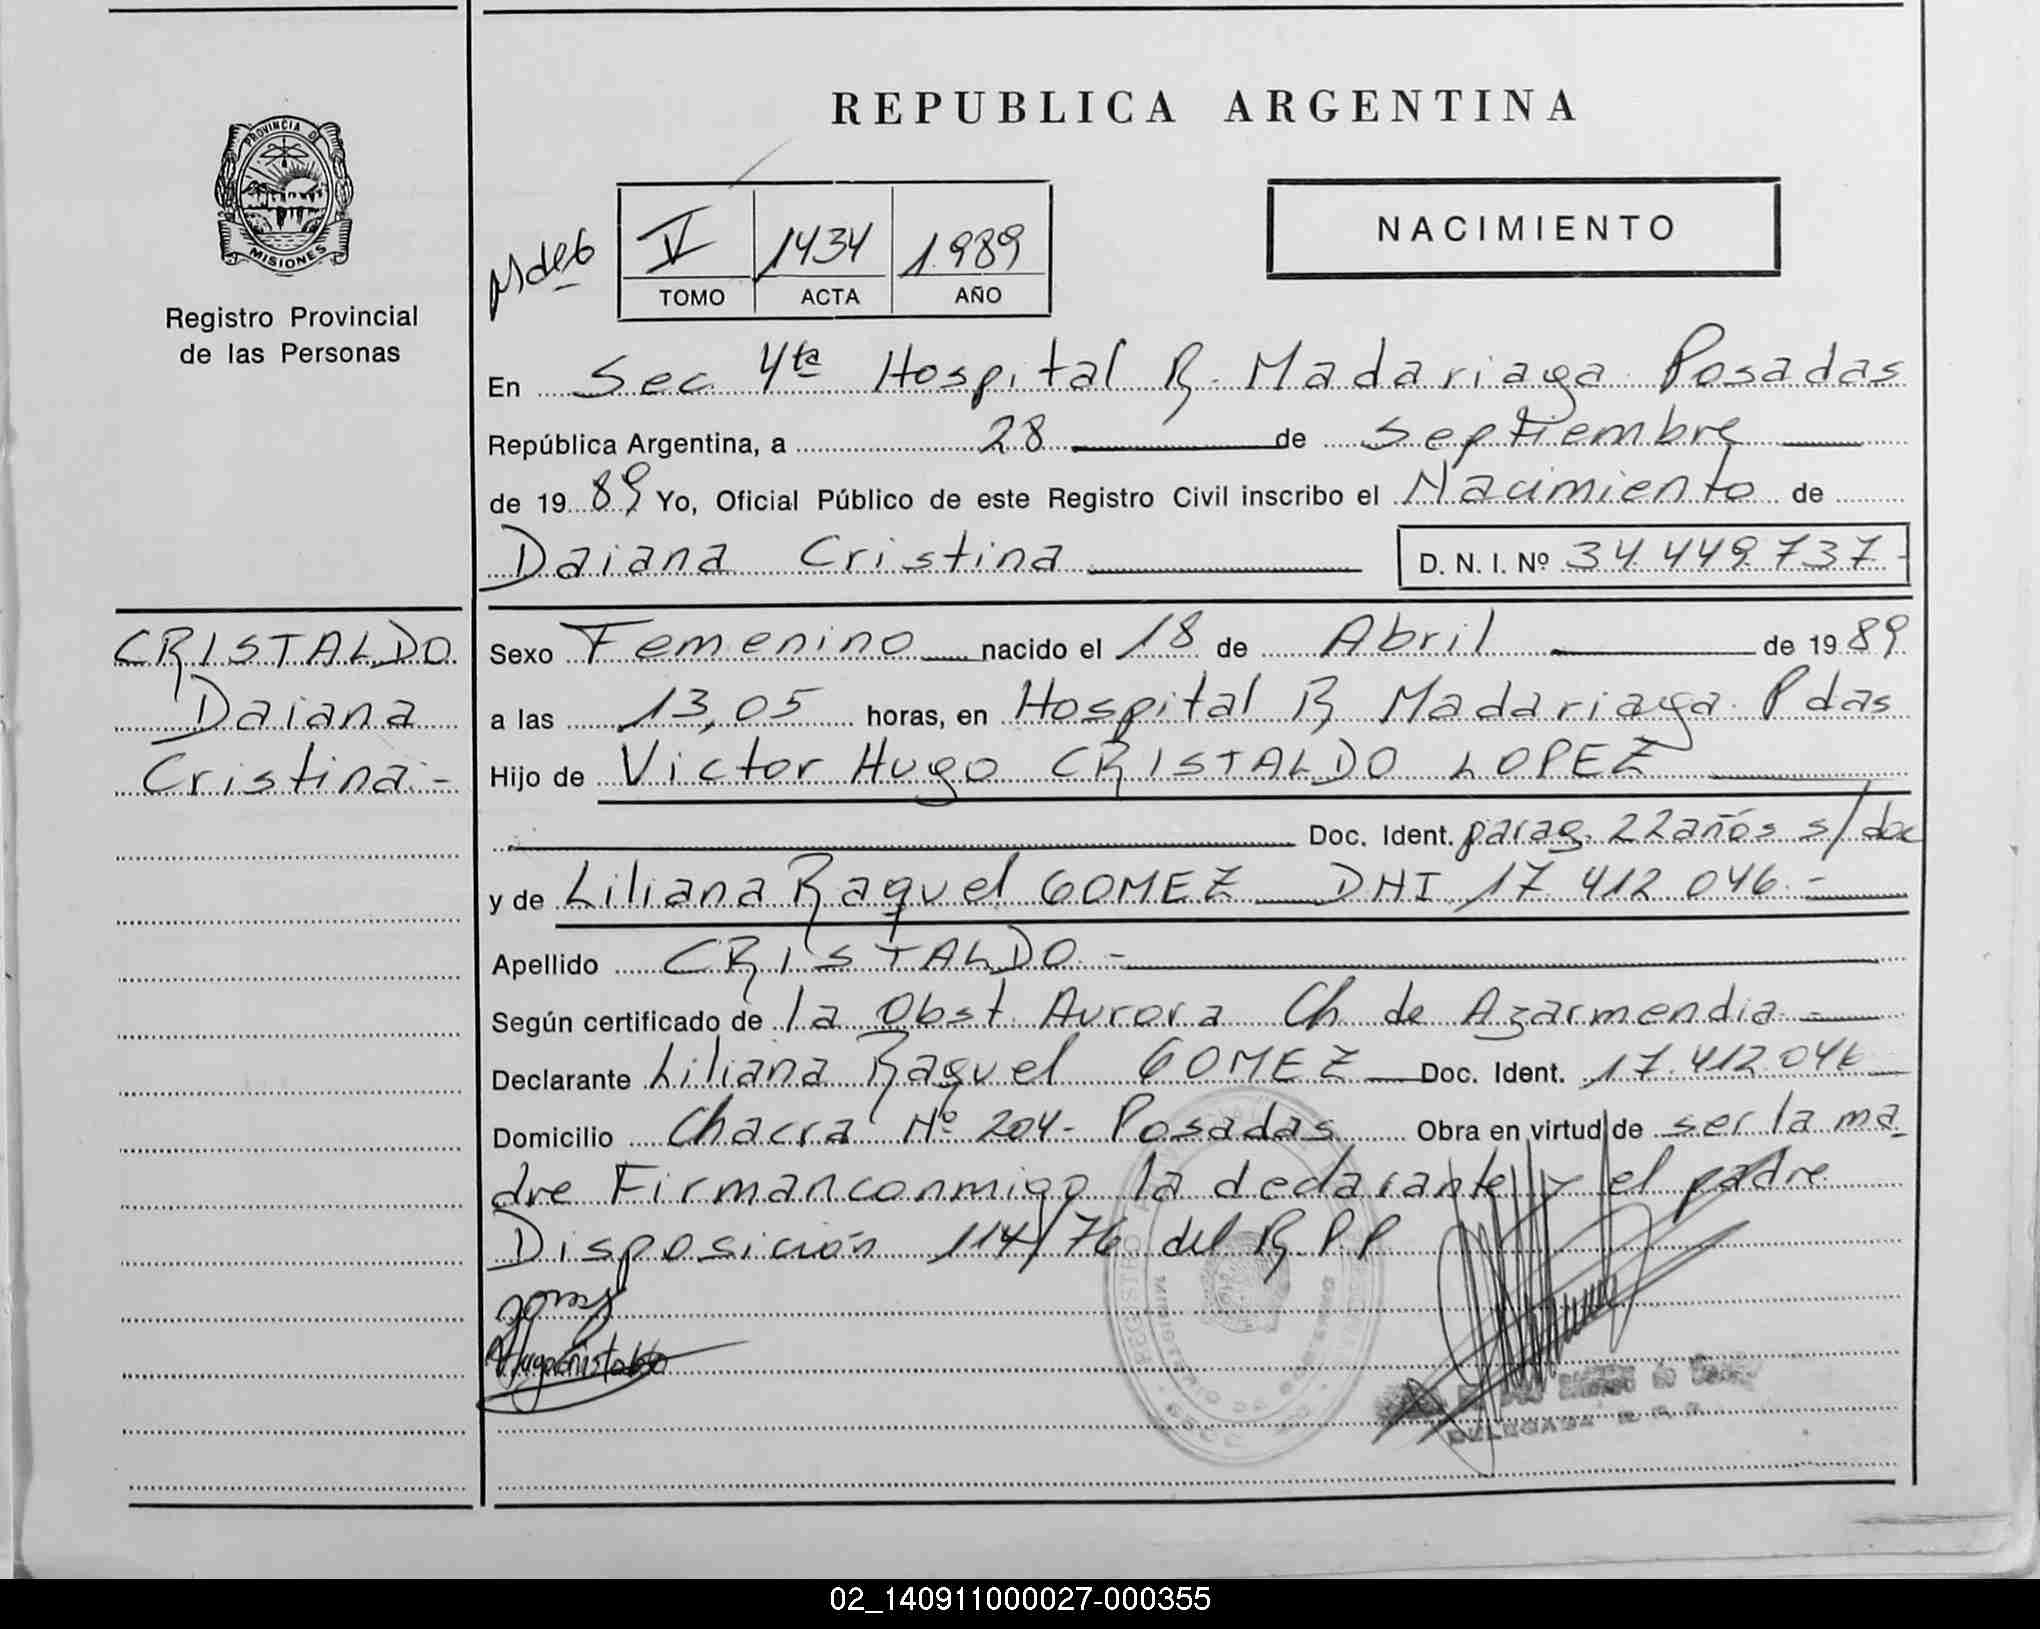 REPUBLICA ARGENTINA
PROVINCIA DE
MISIONES
Registro Provincial
de las Personas
NACIMIENTO
V 1434 1.989
TOMO ACTA AÑO
En Sec. 4ta Hospital R. Madariaga Posadas
República Argentina, a 28 de Septiembre
de 19 89 Yo, Oficial Público de este Registro Civil inscribo el Nacimiento de
Daiana Cristina D. N. I. Nº 34.449.737.-
CRISTALDO
Daiana
Cristina.-
Sexo Femenino nacido el 18 de Abril de 19 89
a las 13,05 horas, en Hospital R Madariaga Pdas
Hijo de Victor Hugo CRISTALDO LOPEZ
Doc. Ident. parag. 22 años s/doc
y de Liliana Raquel GOMEZ DNI 17.412.046.-
Apellido CRISTALDO.-
Según certificado de la Obst. Aurora Ch. de Azarmendia.-
Declarante Liliana Raquel GOMEZ Doc. Ident. 17.412.046
Domicilio Chacra Nº 204- Posadas Obra en virtud de ser la ma
dre Firman conmigo la declarante y el padre
Disposición 114/76 del R.P.P
02_140911000027-000355